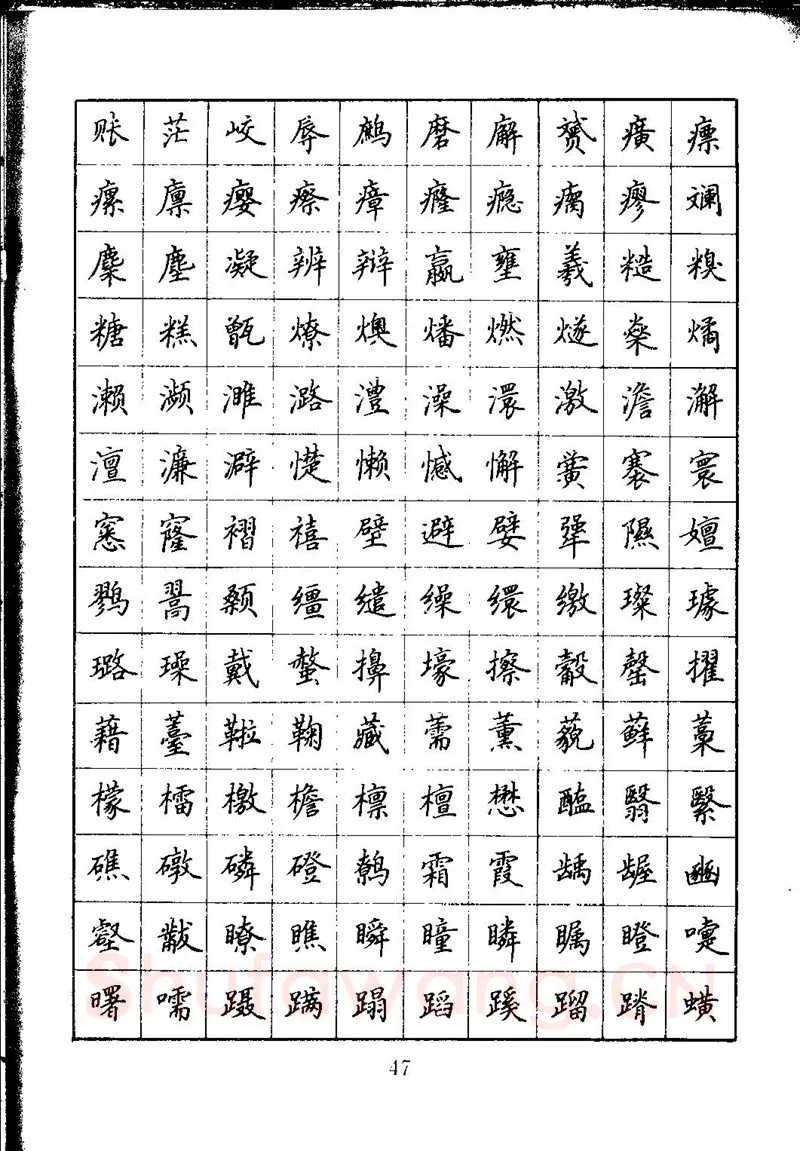 账 茫 峧 辱 鹧 磨 廨 赟 癀 瘭
瘰 廪 瘿 瘵 瘴 癃 瘾 瘸 瘳 斓
麇 麈 凝 辨 辩 嬴 壅 羲 糙 糗
糖 糕 甑 燎 燠 燔 燃 燧 燊 燏
濑 濒 濉 潞 澧 澡 澴 激 澹 澥
澶 濂 澼 憷 懒 憾 懈 黉 褰 寰
窸 窿 褶 禧 壁 避 嬖 犟 隰 嬗
鹨 翯 颡 缰 缱 缲 缳 缴 璨 璩
璐 璪 戴 螫 擤 壕 擦 觳 罄 擢
藉 薹 鞡 鞠 藏 薷 薰 藐 藓 藁
檬 檑 檄 檐 檩 檀 懋 醢 翳 繄
礁 礅 磷 磴 鹩 霜 霞 龋 龌 豳
壑 黻 瞭 瞧 瞬 瞳 瞵 瞩 瞪 嚏
曙 嚅 蹑 蹒 蹋 蹈 蹊 蹓 蹐 蟥
47
Shufawang.CN